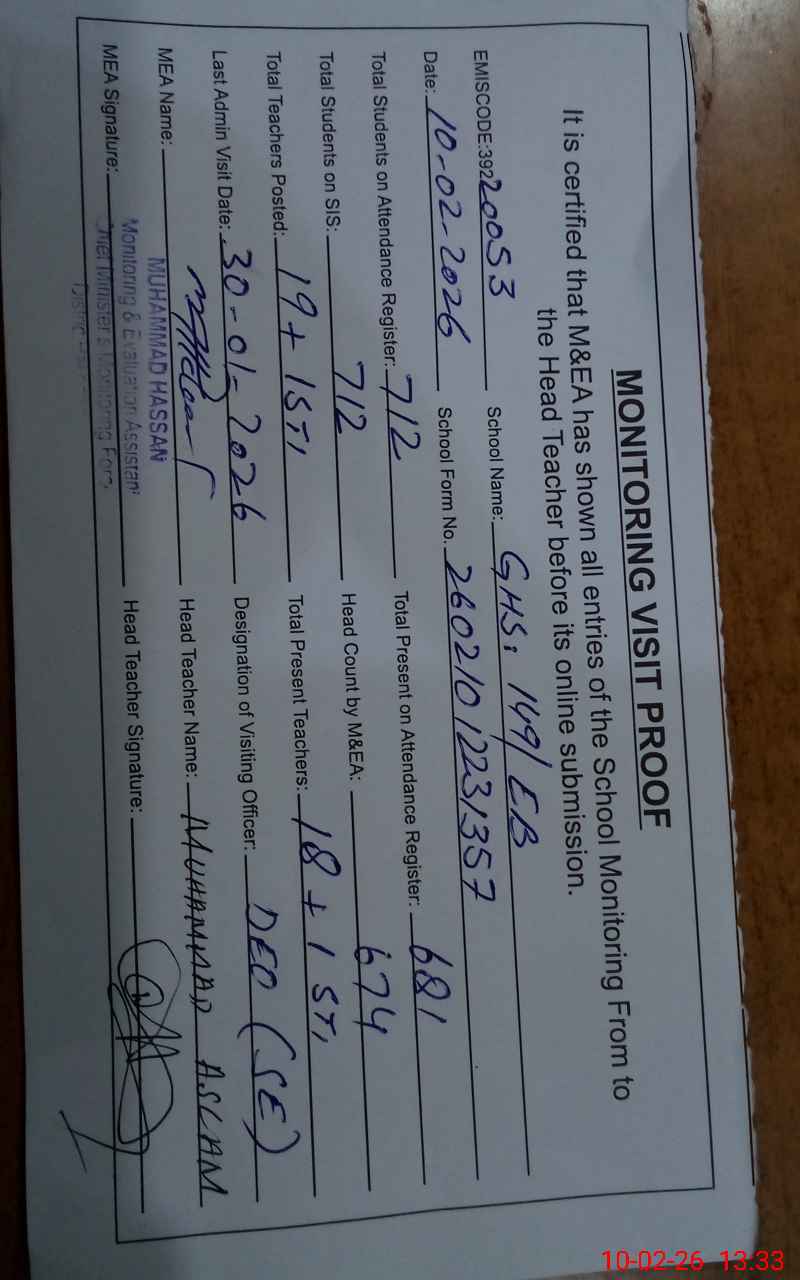 MONITORING VISIT PROOF
It is certified that M&EA has shown all entries of the School Monitoring From to
the Head Teacher before its online submission.
EMISCODE:39220053 School Name: GHS. 149/EB
Date: 10-02-2026 School Form No. 26021012231357
Total Students on Attendance Register: 712 Total Present on Attendance Register: 681
Total Students on SIS: 712 Head Count by M&EA: 674
Total Teachers Posted: 19 + 1 ST, Total Present Teachers: 18 + 1 ST,
Last Admin Visit Date: 30-01-2026 Designation of Visiting Officer: DEO (SE)
MEA Name: Head Teacher Name: MUHAMMAD ASLAM
MUHAMMAD HASSAN
Monitoring & Evaluation Assistant
MEA Signature: Head Teacher Signature:
Chief Minister's Monitoring Force
10-02-26 13:33